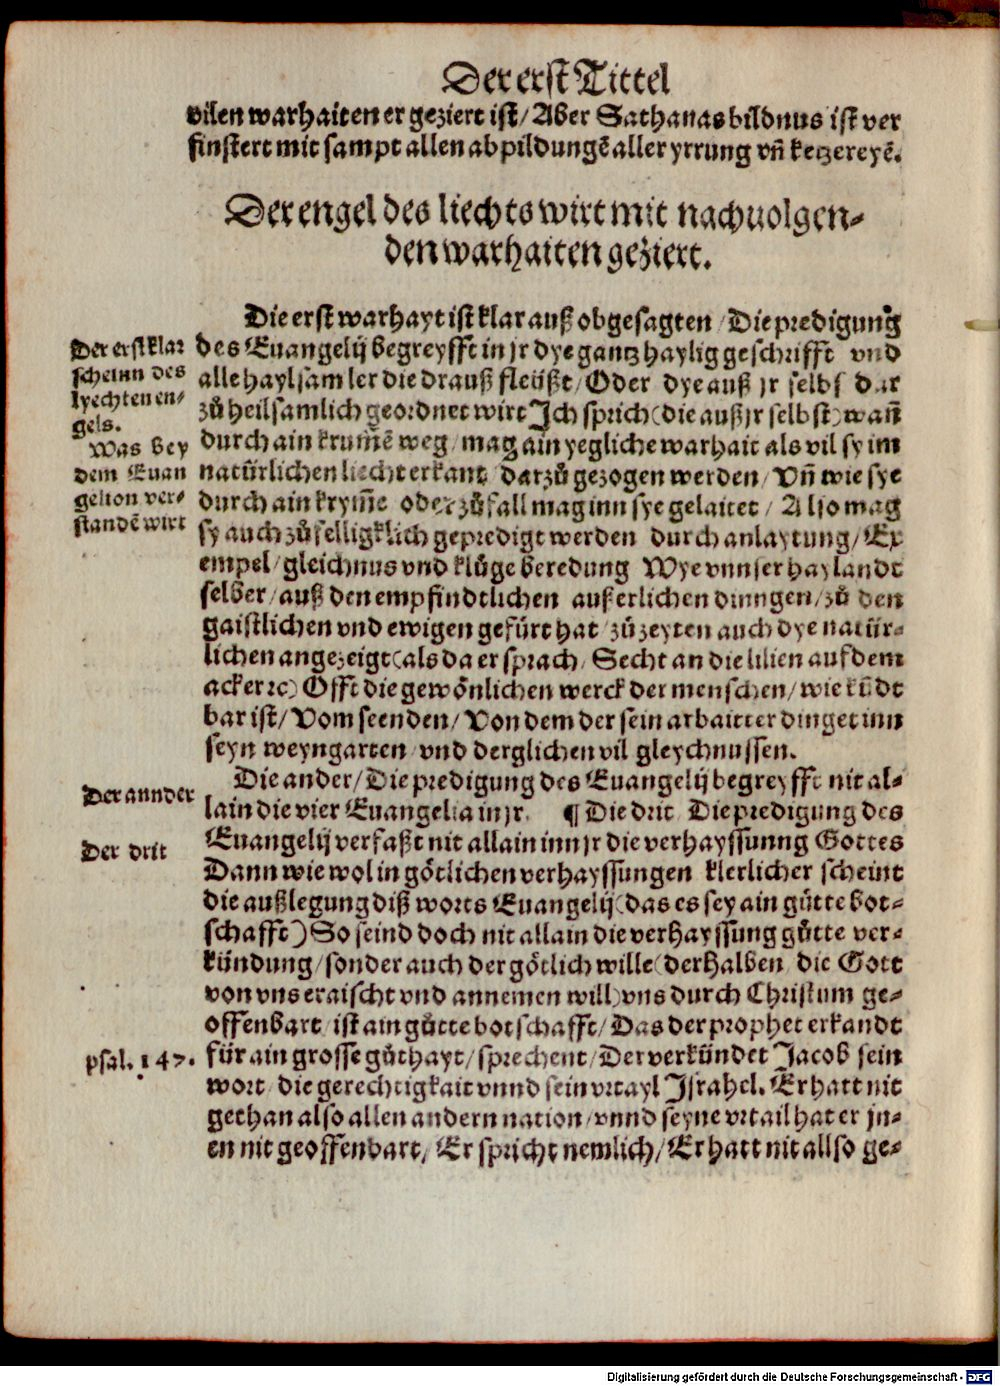 Der erst Tittel
vilen warhaiten er geziert ist / Aber Sathanas bildnus ist ver
finstert mit sampt allen abpildungē aller yrrung vñ ketzereyē.
Der engel des liechts wirt mit nachuolgen-
den warhaiten geziert.
Die erst warhayt ist klar auß obgesagten / Die predigung
des Euangelij begreyfft in jr dye gantz haylig geschrifft vnd
alle haylsam ler die drauß fleüßt / Oder dye auß jr selbs dar
zů heilsamlich geordnet wirt Jch sprich (die auß jr selbst) wañ
durch ain krumē weg / mag ain yegliche warhait als vil sy im
natürlichen liecht erkant darzů gezogen werden / Vñ wie sye
durch ain krym̄e oder zůfall mag inn sye gelaitet / Also mag
sy auch zůfelligklich gepredigt werden durch anlaytung / Ex
empel / gleichnus vnd klůge beredung Wye vnnser haylandt
selber / auß den empfindtlichen außerlichen dinngen / zů den
gaistlichen vnd ewigen gefürt hat / zů zeyten auch dye natür-
lichen angezeigt (als da er sprach / Secht an die lilien auf dem
acker ꝛc) Offt die gewönlichen werck der menschen / wie kūdt
bar ist / Vom seenden / Von dem der sein arbaitter dinget inn
seyn weyngarten / vnd derglichen vil gleychnussen.
Die ander / Die predigung des Euangelij begreyfft nit al-
lain die vier Euangelia in jr. ¶ Die drit Die predigung des
Euangelij verfaßt nit allain inn jr die verhayssunng Gottes
Dann wie wol in götlichen verhayssungen klerlicher scheint
die außlegung diß worts Euangelij (das es sey ain gůtte bot-
schafft) So seind doch nit allain die verhayssung gůtte ver-
kündung / sonder auch der götlich wille (derhalben die Gott
von vns eraischt vnd annemen will) vns durch Christum ge-
offenbart / ist ain gůtte botschafft / Das der prophet erkandt
für ain grosse gůthayt / sprechent / Der verkündet Jacob sein
wort / die gerechtigkait vnnd sein vrtayl Jsrahel. Er hatt nit
gethan also allen andern nation / vnnd seyne vrtail hat er jn-
en nit geoffenbart / Er spricht nemlich / Er hatt nit allso ge-
Der erst klar
scheinn des
lyechten en-
gels.
Was bey
dem Euan
gelion ver-
standē wirt
Der annder
Der drit
psal. 147.
Digitalisierung gefördert durch die Deutsche Forschungsgemeinschaft - DFG